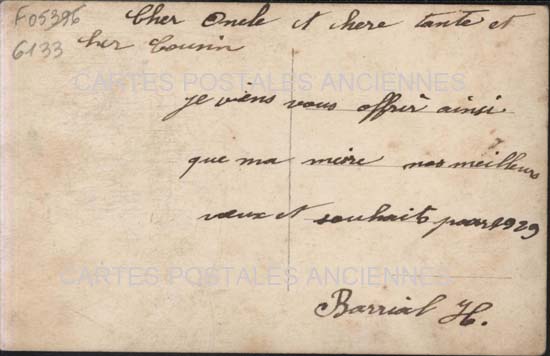 F05396
6133
Cher Oncle et chere tante et
cher Cousin
CARTES POSTALES ANCIENNES
je viens vous offrir ainsi
que ma mère nos meilleurs
vœux et souhaits pour 1929
CARTES POSTALES ANCIENNES
Barrial H.